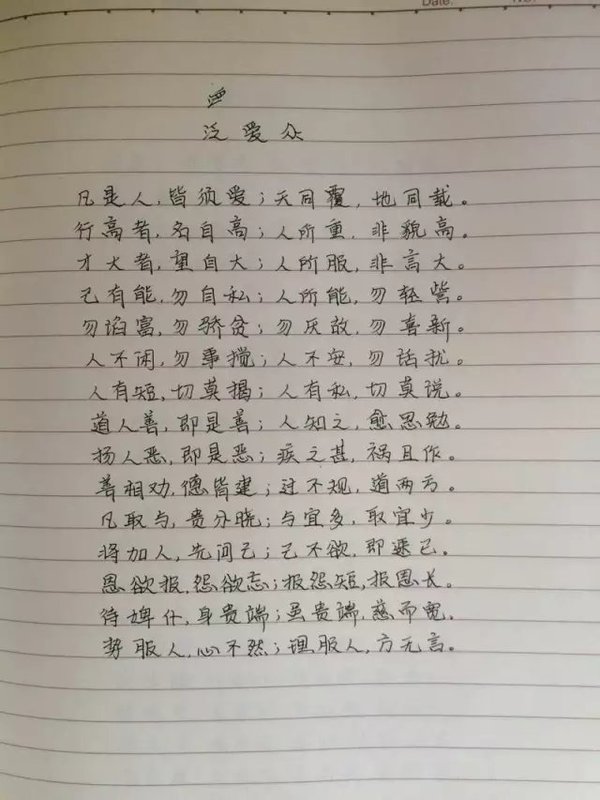 Date. No.
泛爱众
凡是人,皆须爱;天同覆,地同载。
行高者,名自高;人所重,非貌高。
才大者,望自大;人所服,非言大。
己有能,勿自私;人所能,勿轻訾。
勿谄富,勿骄贫;勿厌故,勿喜新。
人不闲,勿事搅;人不安,勿话扰。
人有短,切莫揭;人有私,切莫说。
道人善,即是善;人知之,愈思勉。
扬人恶,即是恶;疾之甚,祸且作。
善相劝,德皆建;过不规,道两亏。
凡取与,贵分晓;与宜多,取宜少。
将加人,先问己;己不欲,即速已。
恩欲报,怨欲忘;报怨短,报恩长。
待婢仆,身贵端;虽贵端,慈而宽。
势服人,心不然;理服人,方无言。